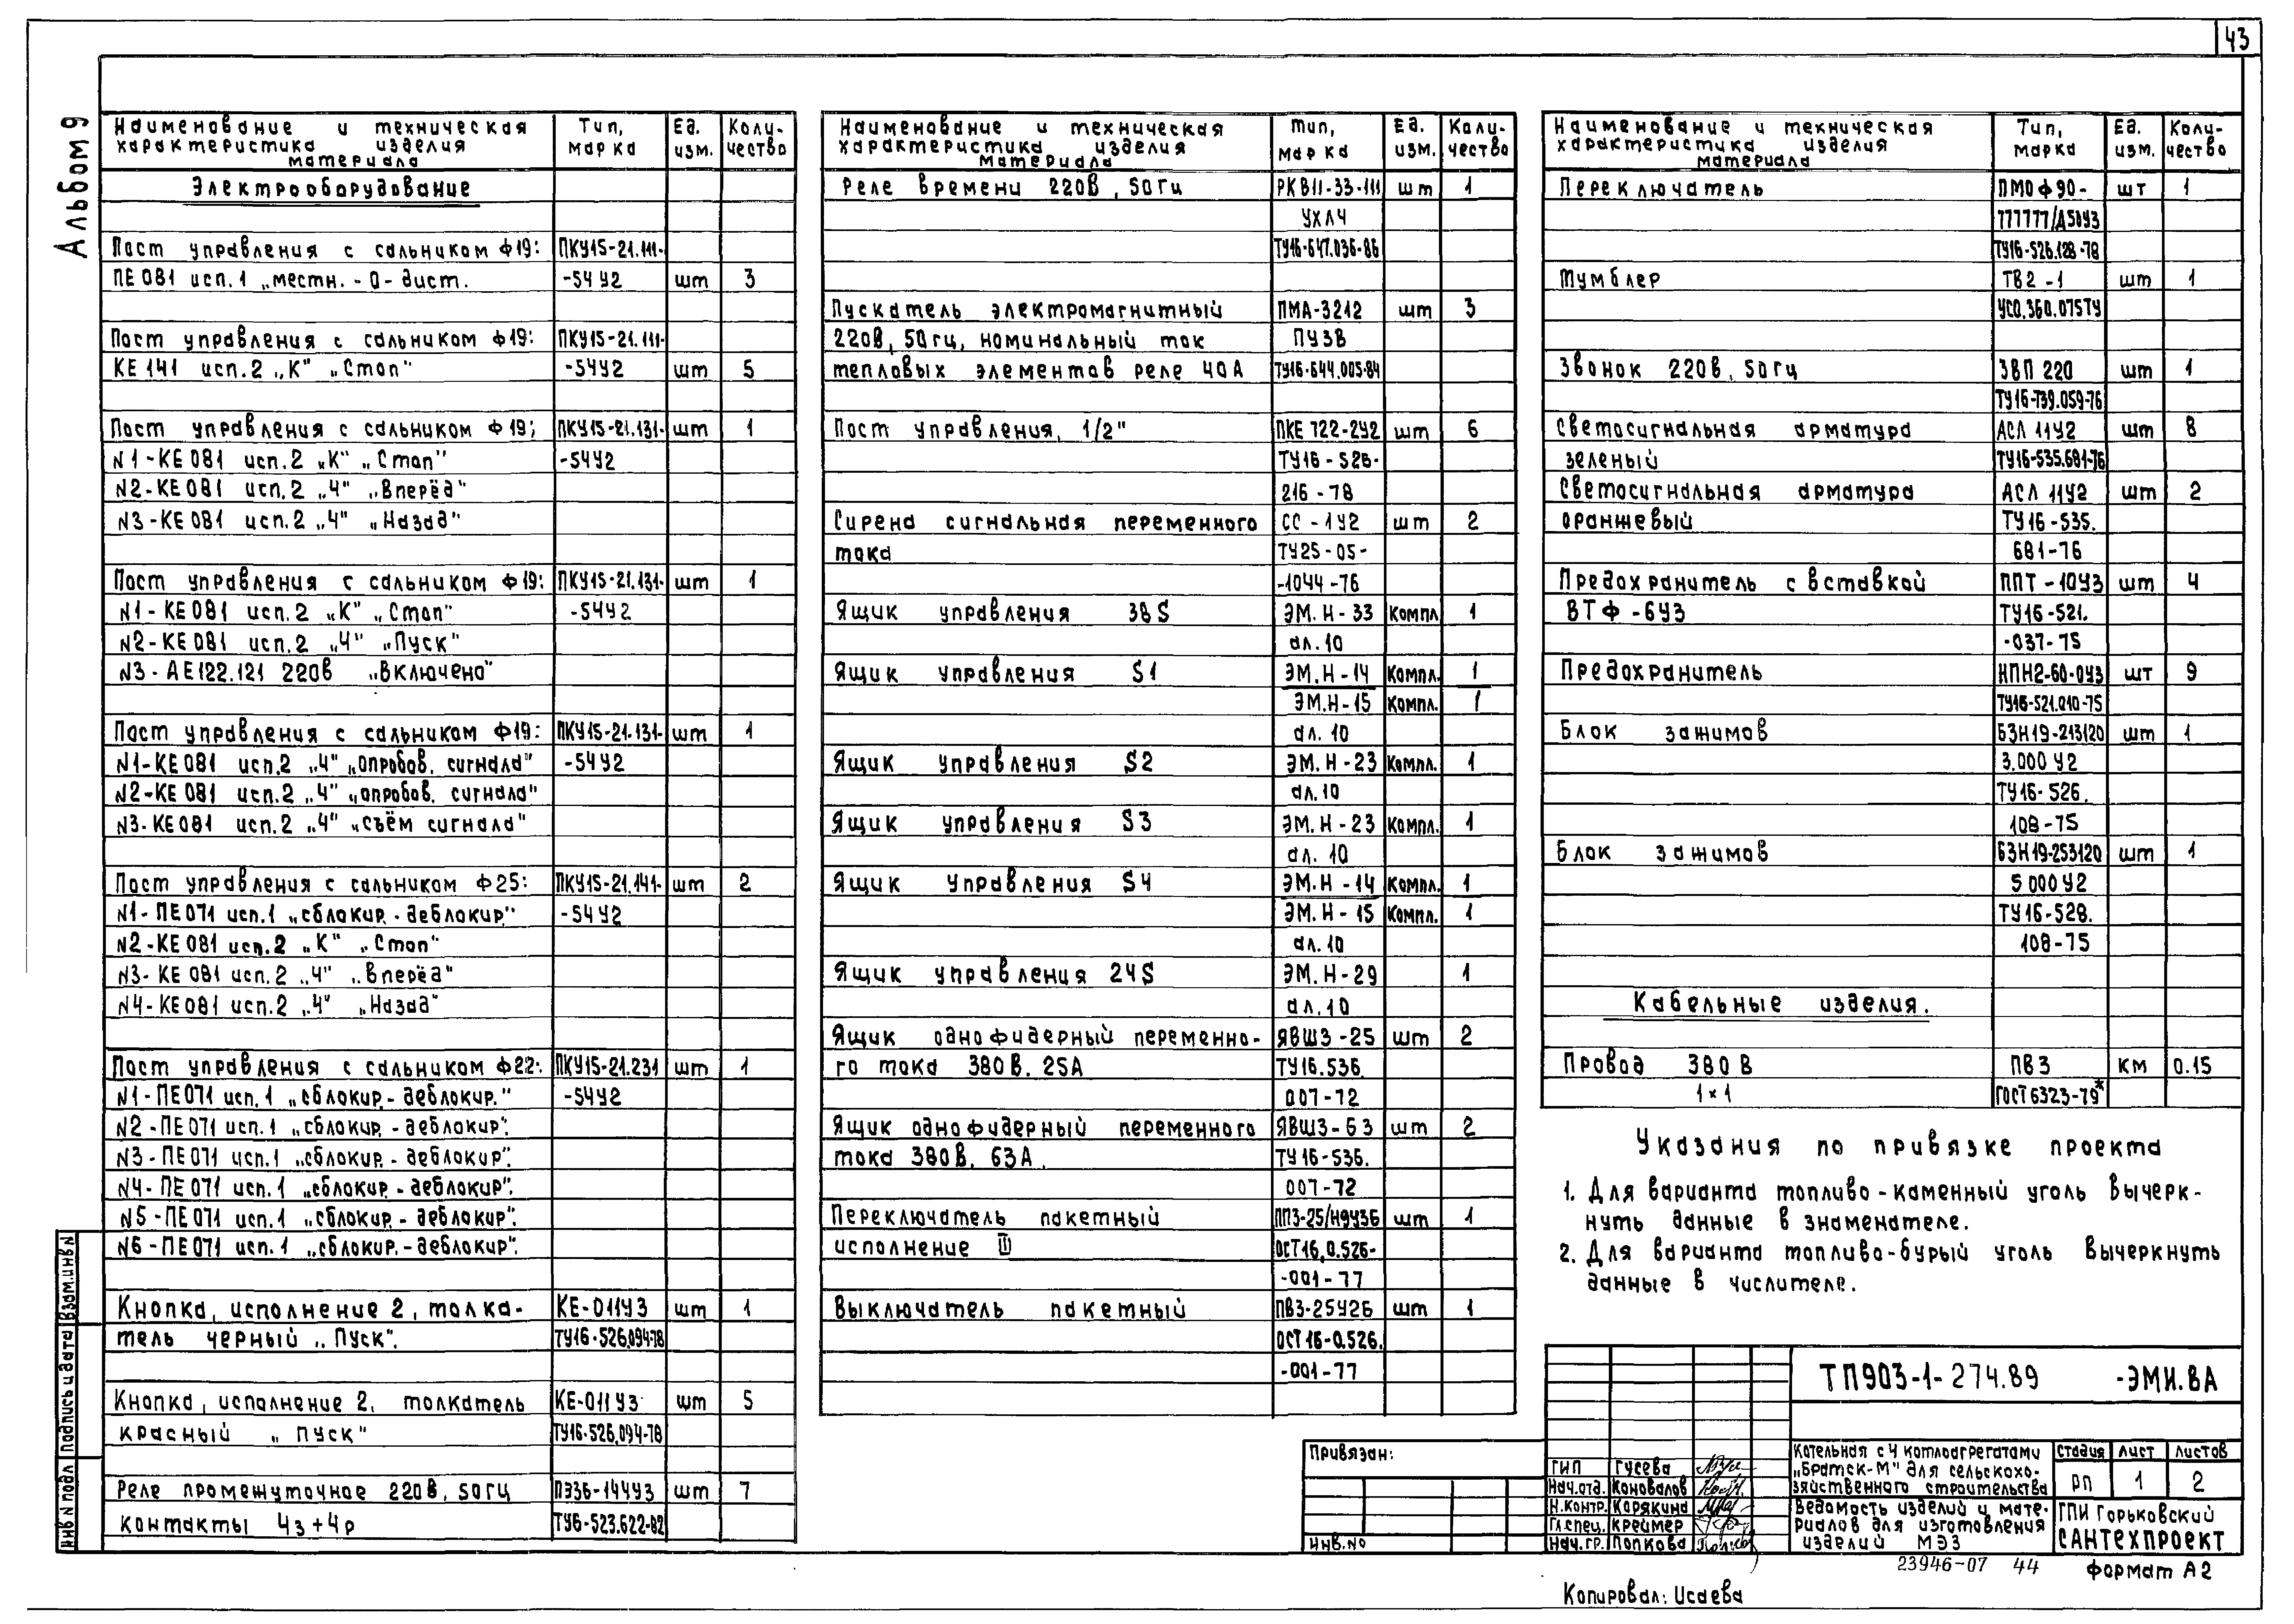 43
Альбом 9
Наименование и техническая характеристика изделия материала | Тип, марка | Ед. изм. | Количество
Электрооборудование
Пост управления с сальником ф19: | ПКУ15-21.111-
ПЕ 081 исп.1 „местн. - 0 - дист. | -54У2 | шт | 3
Пост управления с сальником ф19: | ПКУ15-21.111-
КЕ 141 исп.2 „К" „Стоп" | -54У2 | шт | 5
Пост управления с сальником ф19; | ПКУ15-21.131- | шт | 1
N1-КЕ 081 исп.2 „К" „Стоп" | -54У2
N2-КЕ 081 исп.2 „Ч" „Вперёд"
N3-КЕ 081 исп.2 „Ч" „Назад"
Пост управления с сальником ф19: | ПКУ15-21.131- | шт | 1
N1-КЕ 081 исп.2 „К" „Стоп" | -54У2
N2-КЕ 081 исп.2 „Ч" „Пуск"
N3-АЕ122.121 220в „Включено"
Пост управления с сальником ф19: | ПКУ15-21.131- | шт | 1
N1-КЕ 081 исп.2 „Ч" „опробов. сигнала" | -54У2
N2-КЕ 081 исп.2 „Ч" „опробов. сигнала"
N3-КЕ081 исп.2 „Ч" „съём сигнала"
Пост управления с сальником ф25: | ПКУ15-21.141- | шт | 2
N1-ПЕ071 исп.1 „сблокир.-деблокир." | -54У2
N2-КЕ 081 исп.2 „К" „Стоп"
N3-КЕ 081 исп.2 „Ч" „Вперёд"
N4-КЕ 081 исп.2 „Ч" „Назад"
Пост управления с сальником ф22: | ПКУ15-21.231 | шт | 1
N1-ПЕ071 исп.1 „сблокир.-деблокир." | -54У2
N2-ПЕ071 исп.1 „сблокир.-деблокир".
N3-ПЕ071 исп.1 „сблокир.-деблокир".
N4-ПЕ071 исп.1 „сблокир.-деблокир".
N5-ПЕ071 исп.1 „сблокир.-деблокир".
N6-ПЕ071 исп.1 „сблокир.-деблокир".
Кнопка, исполнение 2, толка- | КЕ-011У3 | шт | 1
тель черный „Пуск". | ТУ16-526.094-78
Кнопка, исполнение 2, толкатель | КЕ-011У3 | шт | 5
красный „пуск" | ТУ16-526.094-78
Реле промежуточное 220в, 50гц | ПЭ36-144У3 | шт | 7
контакты 4з+4р | ТУ6-523.622-82
Наименование и техническая характеристика изделия материала | тип, марка | Ед. изм. | Количество
Реле времени 220в, 50гц | РКВ11-33-111 | шт | 1
УХЛ4
ТУ16-647.036-86
Пускатель электромагнитный | ПМА-3212 | шт | 3
220в, 50гц, номинальный ток | ПУ3В
тепловых элементов реле 40А | ТУ16-644.005-84
Пост управления, 1/2" | ПКЕ 722-2У2 | шт | 6
ТУ16-526-
216-78
Сирена сигнальная переменного | СС-1У2 | шт | 2
тока | ТУ25-05-
-1044-76
Ящик управления 38S | ЭМ.Н-33 | Компл | 1
ал.10
Ящик управления S1 | ЭМ.Н-14 | Компл. | 1
ЭМ.Н-15 | Компл. | 1
ал. 10
Ящик управления S2 | ЭМ.Н-23 | Компл. | 1
ал.10
Ящик управления S3 | ЭМ.Н-23 | Компл. | 1
ал. 10
Ящик управления S4 | ЭМ.Н-14 | Компл. | 1
ЭМ.Н-15 | Компл. | 1
ал.10
Ящик управления 24S | ЭМ.Н-29 | 1
ал.10
Ящик однофидерный переменно- | ЯВШ3-25 | шт | 2
го тока 380в. 25А | ТУ16.536.
007-72
Ящик однофидерный переменного | ЯВШ3-63 | шт | 2
тока 380в. 63А. | ТУ16-536.
007-72
Переключатель пакетный | ПП3-25/Н9У3Б | шт | 1
исполнение III | ОСТ16.0.526-
-001-77
Выключатель пакетный | ПВ3-25У2Б | шт | 1
ОСТ16-0.526.
-001-77
Наименование и техническая характеристика изделия материала | Тип, марка | Ед. изм. | Количество
Переключатель | ПМОФ90- | шт | 1
777777/Д58У3
ТУ16-526.128-78
Тумблер | ТВ2-1 | шт | 1
УСО.360.075ТУ
Звонок 220в, 50гц | ЗВП 220 | шт | 1
ТУ16-739.059-76
Светосигнальная арматура | АСЛ 11У2 | шт | 8
зеленый | ТУ16-535.681-76
Светосигнальная арматура | АСЛ 11У2 | шт | 2
оранжевый | ТУ16-535.
681-76
Предохранитель с вставкой | ППТ-10У3 | шт | 4
ВТФ-6У3 | ТУ16-521.
-037-75
Предохранитель | НПН2-60-0У3 | шт | 9
ТУ16-521.010-75
Блок зажимов | БЗН19-213120 | шт | 1
3.000 У2
ТУ16-526.
108-75
Блок зажимов | БЗН19-253120 | шт | 1
5 000У2
ТУ16-528.
108-75
Кабельные изделия.
Провод 380В | ПВ3 | км | 0.15
1×1 | ГОСТ6323-79*
Указания по привязке проекта
1. Для варианта топливо-каменный уголь вычерк-
нуть данные в знаменателе.
2. Для варианта топливо-бурый уголь вычеркнуть
данные в числителе.
ТП903-1-274.89 -ЭМИ.ВА
Привязан:
Инв.No
ГИП Гусева
Нач.отд. Коновалов
Н.контр. Карякина
Гл.спец. Креймер
Нач.гр. Попкова
Котельная с 4 котлоагрегатами
„Братск-М" для сельскохо-
зяйственного строительства
Ведомость изделий и мате-
риалов для изготовления
изделий МЭЗ
Стадия Лист Листов
РП 1 2
ГПИ Горьковский
САНТЕХПРОЕКТ
23946-07 44
Формат А2
Копировал: Исаева
Взам.инв N
Подпись и дата
Инв N подл